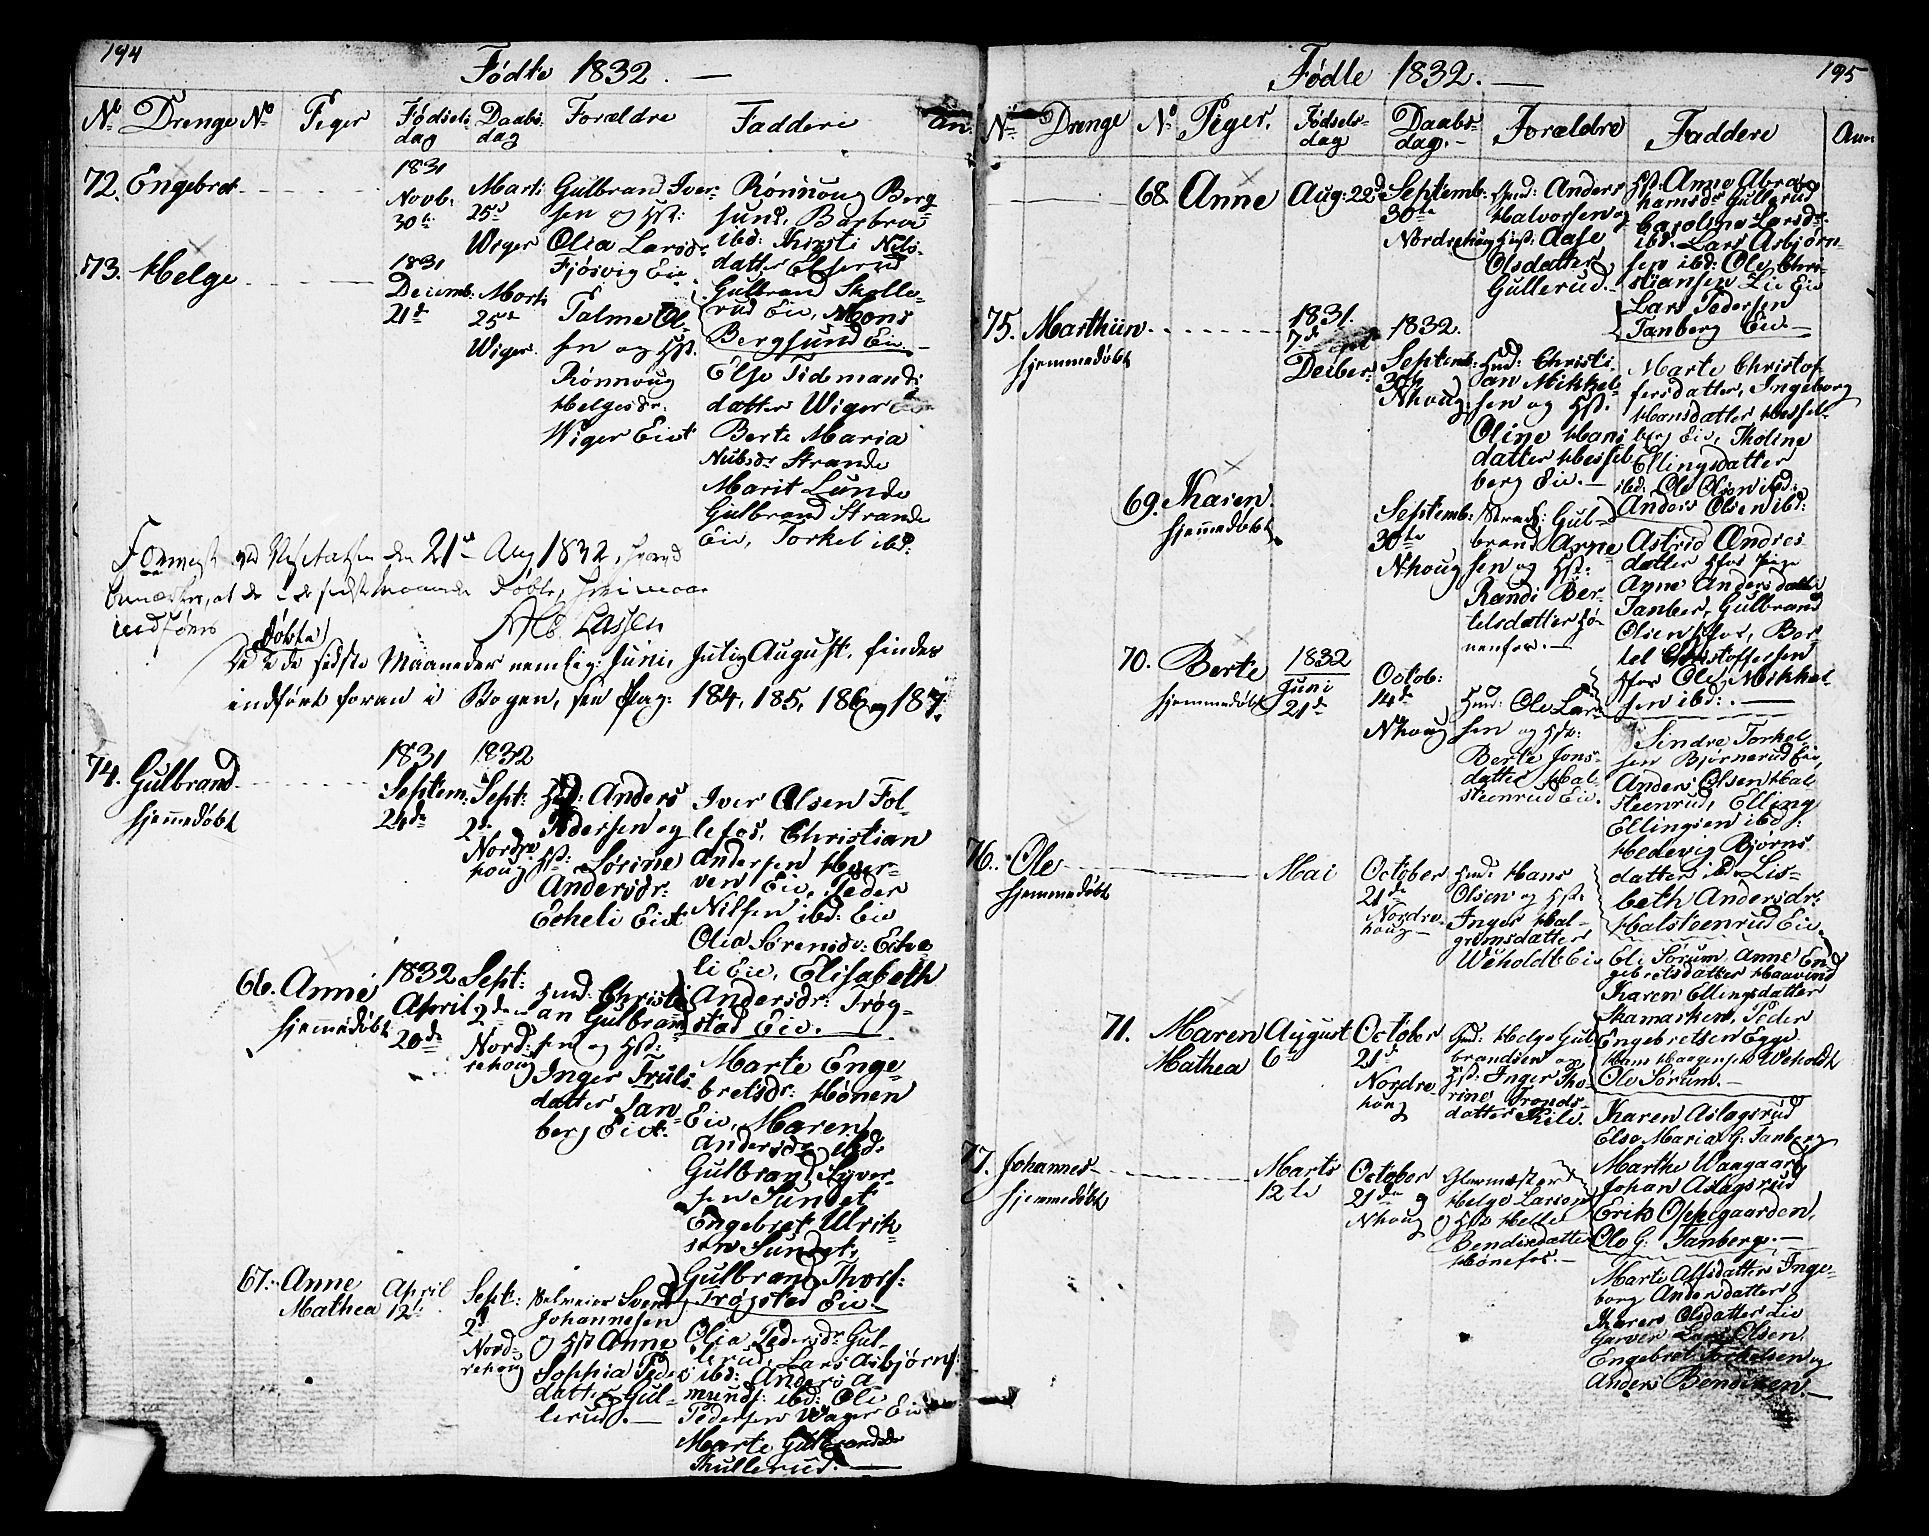 194
Födte 1832. —
No Drenge No Piger Fødsels dag Daabs dag Forældre Faddere An.
72. Engebret
1831
Novb.
30te
Marts
25de
Wiger
Gulbrand Iver-
sen og Hst:
Olia Larsdr
Fjösvig Eie
Rönnoug Berg
sund, Barbroe
ibd: Kirsti Nils
datter Elserud
Gulbrand Skolle-
rud Eie, Mons
Bergsund Eie. —
73. Helge
1831
Decemb:
21de
Marts
25de
Wiger.
Palme Ol
sen og Hst.
Rönnoug
Helgesdr:
Wiger Eiet
Else Tidemands
datter Wiger
Berte Maria
Nubsdr Strande
Marit Lunde
Gulbrand Strande
Eie, Torkel ibd:
ved Visitatsen den 21de Aug 1832,
at de i de sidste Maaneder Døbte,
indføres
Lassen
Døbte
De i de sidste Maaneder nemlig: Juni, Julig August. findes
indfört foran i Bogen, see Pag: 184, 185, 186 og 187.
74. Gulbrand
hjemmedøbt
1831
Septem:
24de
1832
Sept:
2de
Nordre
houg
Anders
Pedersen og
Hst: Lørine
Andersdr:
Echeli Eiet
Iver Olsen Fol-
lefos, Christian
Andersen Hver-
ven Eie, Peder
Nilsen ibd: Eie
Olia Sørensdr: Eche
li Eie, Elisabeth
Andersdr: Trøg-
stad Eie. —
66. Anne
hjemmedøbt
1832
April
20de
Sept:
2de
Nord-
rehoug
Hmd: Christi
an Gulbrand
sen og Hst:
Inger Truls
datter Tan-
berg Eiet.
Marte Enge-
bretsdr: Hønen
Eie, Maren
Andersdr ibd:
Gulbrand Syver-
sen Sundet
Engebret Ulrik-
sen Sundet,
Gulbrand Thors:
Trøgsted Eie. —
67. Anne
Mathea
April
12te
Sept:
2de
Nord-
rehoug
Selveier Svend
Johannesen
og Hst Anne
Sophia Peders
datter Gul-
lerud. —
Olia Pedersdr Gul-
lerud, Lars Asbjørns:
ibd: Anders A
munds: ibd: Ole
Pedersen Wager Eie
Marte Gulbrandsdr
Kullerud. —
195
Födte 1832. —
No Drenge No Piger. Fødsels- dag Daabs- dag. — Forældre Faddere Anm
68. Anne
Aug: 22de
Septemb:
30te
Nordrehoug
Hmd: Anders
Halvorsen og
Hst: Aase
Olsdatter
Gullerud. —
Hst: Anne Abra-
hamsdr Gullerud
Caroline Larsdr:
ibd: Lars Asbjørn-
sen ibd: Ole Chri-
stiansen Lie Eie
Lars Pedersen
Tanberg Eie. —
75. Marthiin
hjemmedøbt
1831.
7de
Decber:
1832.
Septemb:
30te
Nhoug
Hmd: Christi-
an Mikkel-
sen og Hst.
Oline Hans
datter Hessel
berg Eie. —
Marte Christof
fersdatter, Ingeborg
Hansdatter Hessel-
berg Eie, Tholine
Ellingsdatter
ibd: Ole Olsen ibd:
Anders Olsen ibd:
69. Karen
hjemmedøbt
Septemb:
30te
Nhoug
Gul-
brand Arne
sen og Hst:
Randi Ber-
telsdatter Hø-
nenfos. —
Astrid Andrea
datter Hfos Pige
Anne Andersdatter
Tanber, Gulbrand
Olsen Hfos, Ber-
tel Christoffersen
Hfos Ole Mikkel-
sen ibd: —
70. Berte
hjemmedøbt
1832
Juni
21de
Octob:
14de
Nhoug
Hmd: Ole Lar-
sen og Hst:
Berte Jons-
datter Hal-
steenrud Eie.
Sindre Torkel
sen Bjørnerud Eie,
Anders Olsen Hal
steenrud, Elling
Ellingsen ibd:
Hedevig Bjørns
datter ibd: Lis-
beth Andersdr:
Halsteenrud Eie.
76. Ole
hjemmedøbt
Mai
October
21de
Nordre-
houg —
Hmd: Hans
Olsen og Hst:
Inger Hal-
grimsdatter
Weholdt Eie
El: Sørum Anne En
gebretsdatter Haavind
Karen Ellingsdatter
Hamarken, Peder
Engebretsen Egge
Hans Haagensen Weholdt
Ole Sørum. —
71. Maren
Mathea
August
6te
October
21de
Nordre
houg
Gmd: Helge Gul
brandsen og
Hst: Inger Tho-
rine Tronds-
datter Kile.
Karen Aslagsrud
Else Maria G: Tanberg
Marthe Waagaard
Johan Aslagsrud
Erik Oppegaarden,
Ole G: Tanberg. —
77. Johannes
hjemmedøbt
Marts
12te
October
21de
Nhoug
Glarmester
Helge Larsen
og Hst Helle
Bendixdatter
Hønefos. —
Marte Alfsdatter Inge-
borg Andersdatter
Karen Olsdatter Lie
Garver Lars Olsen
Engebret Torkelsen og
Anders Bendixen. —